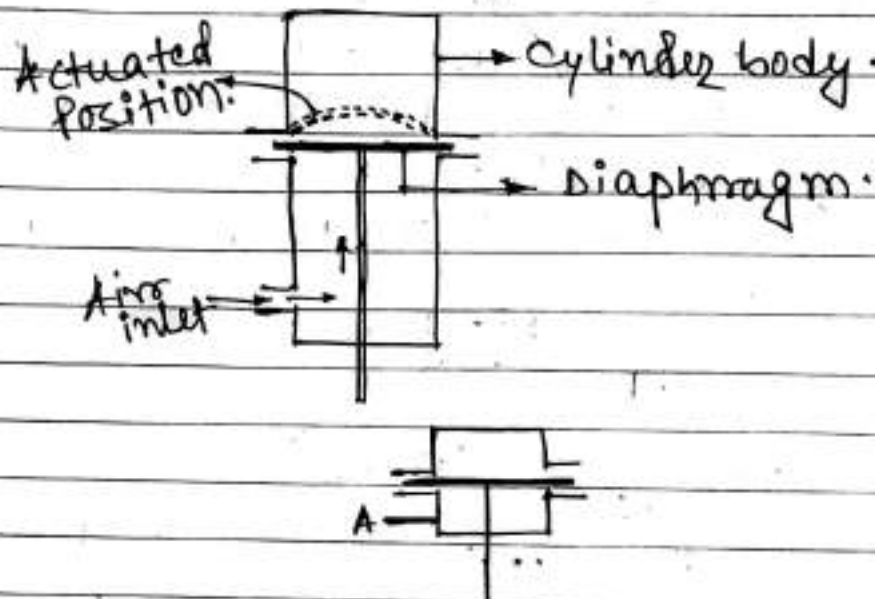 Actuated
Position.
Cylinder body.
Diaphragm.
Air
inlet
A